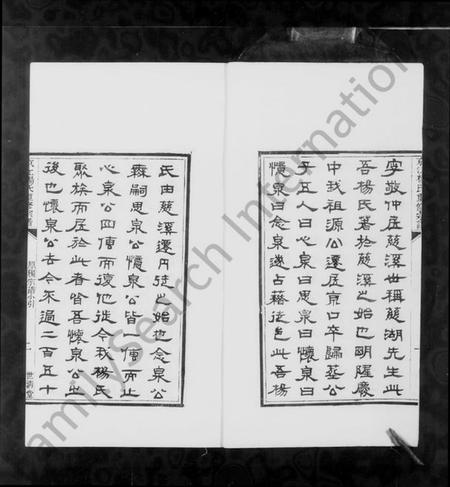 字敬仲居慈溪世稱慈湖先生此
吾楊氏著於慈溪之始也明隆慶
中我祖源公遷居京口卒歸葬公
子五人曰心泉曰思泉曰懷泉曰
憶泉曰念泉遂占籍徒邑此吾楊
氏由慈溪遷丹徒之始也念泉公
無嗣思泉公憶泉公皆一傳而止
心泉公四傳而復他徙今我楊氏
聚族而居於此者皆吾懷泉公之
後也懷泉公去今不過二百五十
二
世清堂
FamilySearch International